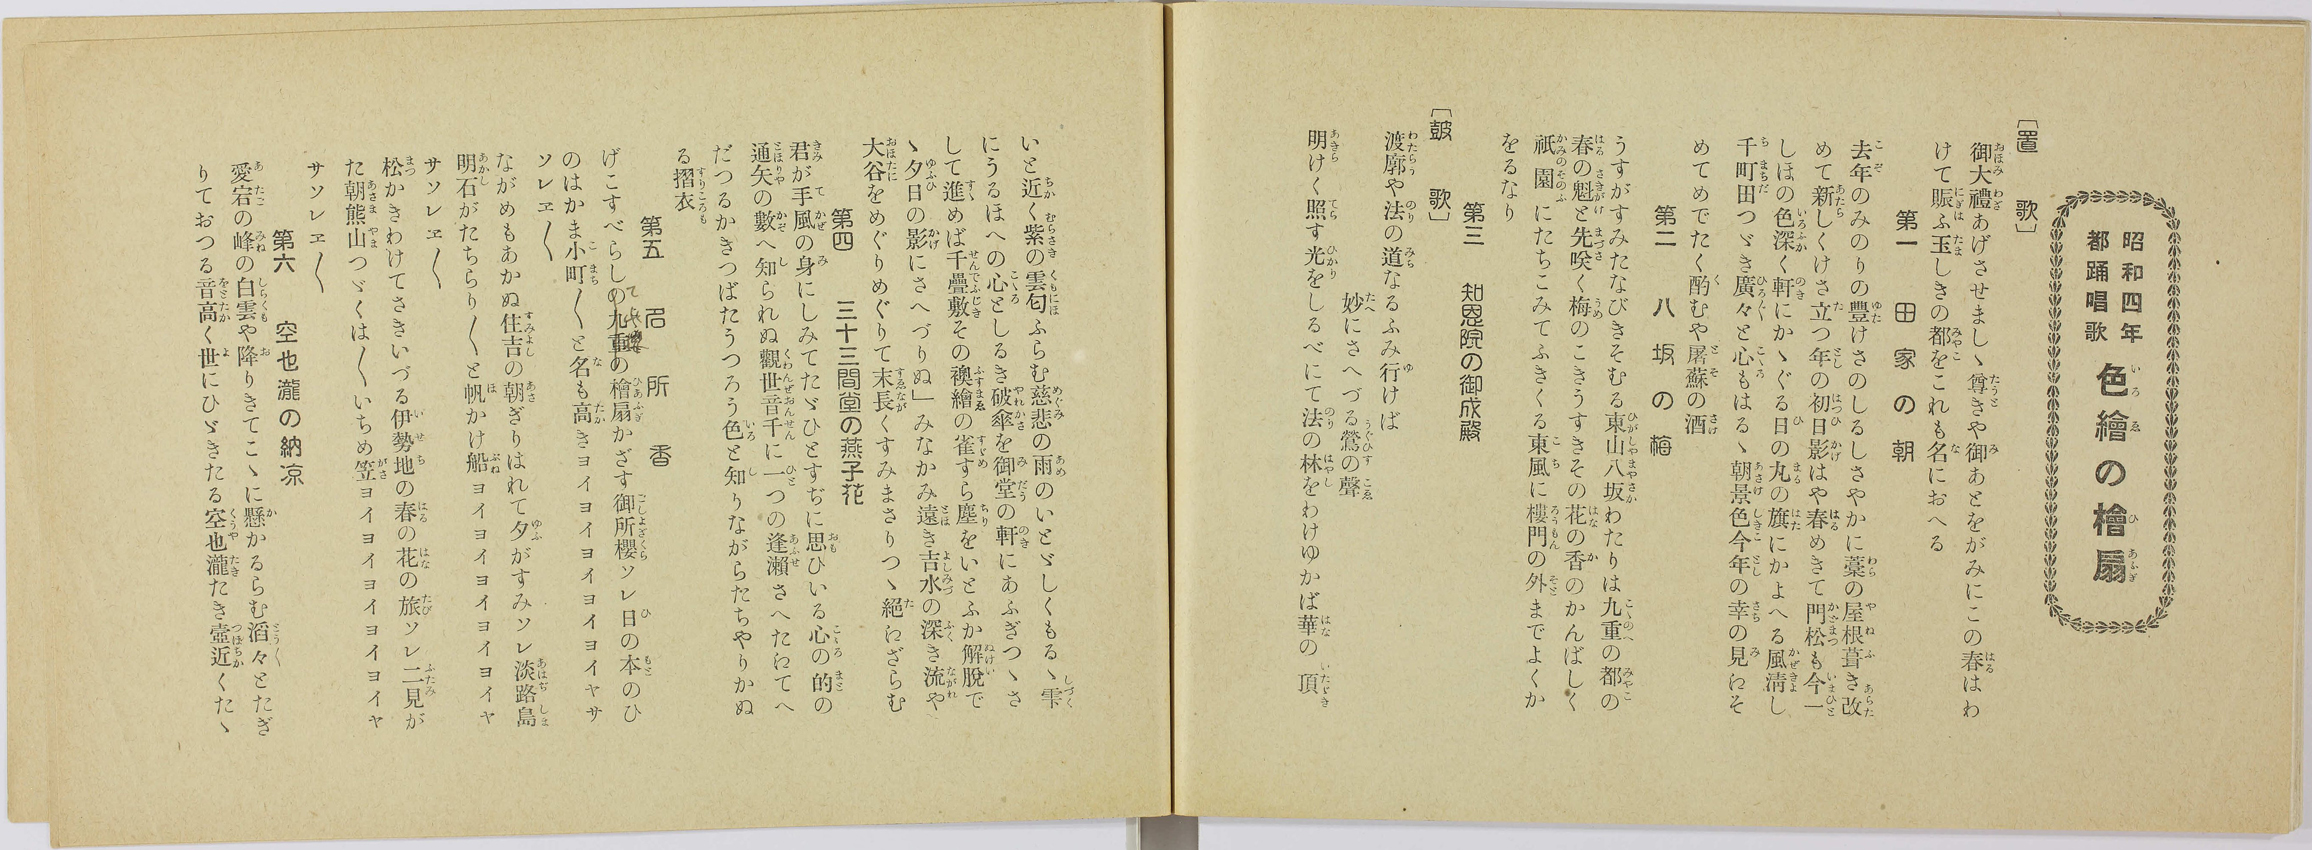 昭和四年
都踊唱歌
色繪の檜扇
〔置歌〕
御大禮あげさせましゝ尊きや御あとをがみにこの春はわ
けて賑ふ玉しきの都をこれも名におへる
第一 田家の朝
去年のみのりの豐けさのしるしさやかに藁の屋根葺き改
めて新しくけさ立つ年の初日影はや春めきて門松も今一
しほの色深く軒にかゝぐる日の丸の旗にかよへる風淸し
千町田つゞき廣々と心もはるゝ朝景色今年の幸の見にそ
めてめでたく酌むや屠蘇の酒
第二 八坂の梅
うすがすみたなびきそむる東山八坂わたりは九重の都の
春の魁と先咲く梅のこきうすきその花の香のかんばしく
祇園にたちこみてふきくる東風に樓門の外までよくか
をるなり
第三 知恩院の御成殿
〔鼓歌〕
渡廓や法の道なるふみ行けば
妙にさへづる鶯の聲
明けく照す光をしるべにて法の林をわけゆかば華の頂
いと近く紫の雲匂ふらむ慈悲の雨のいとゞしくもるゝ雫
にうるほへの心としるき破傘を御堂の軒にあふぎつゝさ
して進めば千疊敷その襖繪の雀すら塵をいとふか解脫で
ゝ夕日の影にさへづりぬ」みなかみ遠き吉水の深き流や
大谷をめぐりめぐりて末長くすみまさりつゝ絕にざらむ
第四 三十三間堂の燕子花
君が手風の身にしみてたゞひとすぢに思ひいる心の的の
通矢の數へ知られぬ觀世音千に一つの逢瀨さへたにてへ
だつるかきつばたうつろう色と知りながらたちやりかぬ
る摺衣
第五 名所香
げこすべらしの九重の檜扇かざす御所櫻ソレ日の本のひ
のはかま小町〳〵と名も高きヨイヨイヨイヨイヨイヤサ
ソレヱ〳〵
ながめもあかぬ住吉の朝ぎりはれて夕がすみソレ淡路島
明石がたちらり〳〵と帆かけ船ヨイヨイヨイヨイヨイヤ
サソレヱ〳〵
松かきわけてさきいづる伊勢地の春の花の旅ソレ二見が
た朝熊山つゞくは〳〵いちめ笠ヨイヨイヨイヨイヨイヤ
サソレヱ〳〵
第六 空也瀧の納凉
愛宕の峰の白雲や降りきてこゝに懸かるらむ滔々とたぎ
りておつる音高く世にひゞきたる空也瀧たき壺近くたゝ